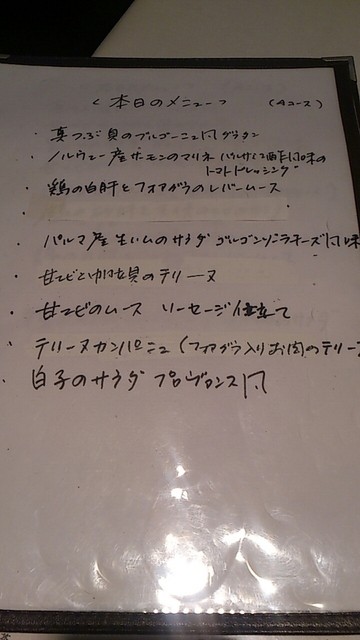 ＜本日のメニュー＞ (Aコース)
・真つぶ貝のブルゴーニュ風グラタン
・ノルウェー産サーモンのマリネ バルサミコ酢風味の
トマトドレッシング
・鶏の白肝とフォアグラのレバームース
・
・パルマ産生ハムのサラダ ゴルゴンゾーラチーズ風味
・甘エビと帆立貝のテリーヌ
・甘エビのムース ソーセージ仕立て
・テリーヌカンパーニュ (フォアグラ入りお肉のテリー
・白子のサラダ プロヴァンス風